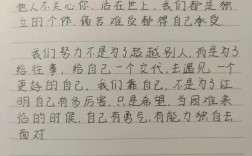 他人不关心你，活在世上，我们都是独
立的个体，痛苦难受都得自己承受
我们努力不是为了超越别人，而是为了
给往事，给自己一个交代，去遇见一个
更好的自己，我们靠自己，不是为了证
明自己有多厉害，只是希望，当困难来
临的时候，自己有勇气，有能力独自去
面对